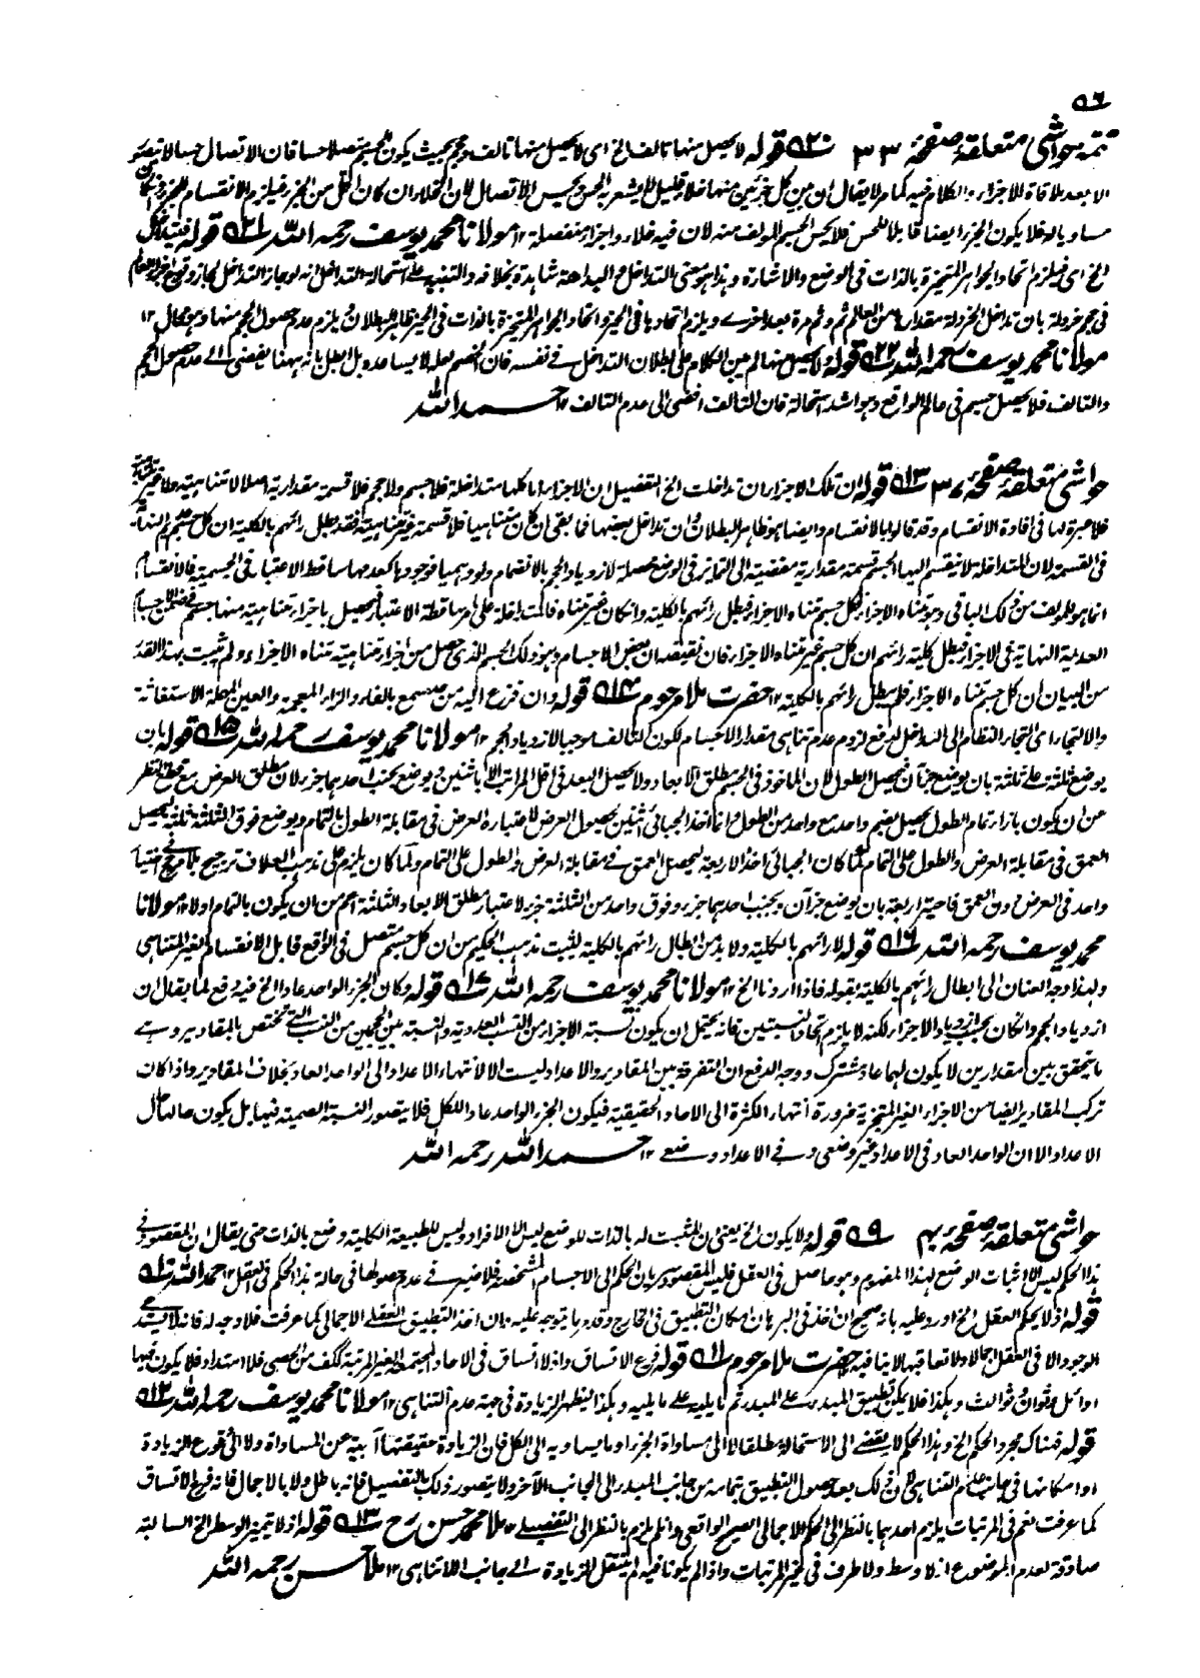 ٥٦
تتمہ حواشی متعلقہ صفحہ ٣٣ ٥٢٠ قولہ لا یحصل منہا تالف الخ ای لا یحصل منہا تالف وحجم بحیث یکون الجسم متصلا حسا فان الاتصال حسا لا یتصور
الا بعد ملاقاة الاجزاء والکلام فیہ کما مر لا یقال ان بین کل جزئین منہا خلاء قلیل لا یشعر بہ الحس ویحس الاتصال لان الخلاء ان کان اقل من الجزء فیلزم الانقسام للجزء وان کان
مساویا لہ فلا یکون الجزء ایضا قابلا للحس فلا یحس الجسم المؤلف منہ لان فیہ خلاء واجزاء منفصلة ١٢ مولانا محمد یوسف رحمہ اللہ ٥٢١ قولہ
الخ ای فیلزم اتحاد الجواہر المتحیزة بالذات فی الوضع والاشارة وہذا ہو معنی التداخل والبداهة شاہدة بخلافہ والتنبیہ علی استحالة التداخل انہ لو جاز التداخل لجاز وقوع اجزاء العالم
فی حیز خردلة بان تداخل الخردلة مقدارہا من العالم ثم وثم مرة بعد اخرے ویلزم اتحادہا فی الحیز واتحاد الجواہر المتحیزة بالذات فی الحیز ظاہر البطلان ویلزم عدم حصول الحجم منہا وہو محال ١٢
مولانا محمد یوسف رحمہ اللہ ٥٢٢ قولہ ولا یحصل منہا لم یبن الکلام علی بطلان التداخل فے نفسہ فان الخصم لعلہ لا یساعدہ بل ابطل بانہ ہہنا یفضی الے عدم حصول الحجم
والتالف فلا یحصل جسم فی عالم الواقع وہو اشد استحالة فان التالف افضی الی عدم التالف ١٢ حمد اللہ
حواشی متعلقہ صفحہ ٥١٣ قولہ ان تلک الاجزاء ان تداخلت الخ التفصیل ان الاجزاء اما کلہا متداخلة فلا جسم ولا حجم فلا قسمة مقداریة اصلا لا متناہیة ولا غیر متناہیة
فلا عبرة لہا فی افادة الانقسام وقد قالوا بالانقسام وایضا ہو ظاہر البطلان وان تداخل بعضہا فما بقی ان کان متناہیا فلا قسمة غیر متناہیة فقد بطل رائہم بالکلیة ان کل جسم
فی القسمة لان المتداخلة لا ینقسم الیہا الجسم قسمة مقداریة مفضیة الی التمایز فی الوضع محصلة لازدیاد الحجم بالانضمام ولو وہمیا فوجودہا کعدمہا ساقط الاعتبار فی الجسمیة فالانقسام
انما ہو لمؤلف من ذلک الباقی وہو متناہ الاجزاء فکل جسم متناہ الاجزاء فبطل رائہم بالکلیة وان کان غیر متناہ فالمتداخلة علی امر ساقطة الاعتبار فیحصل باجزاء متناہیة منہا جسم
العدیة النہایة فی الاجزاء فبطل کلیة رائہم ان کل جسم غیر متناہ الاجزاء فان نقیضہ ان بعض الاجسام وہو ذلک الجسم الذی حصل من اجزاء متناہیة متناہ الاجزاء ولم یثبت بہذا القدر
من البیان ان کل جسم متناہ الاجزاء فلم یبطل رائہم بالکلیة ١٢ حضرت ملا مرحوم ٥١٤ قولہ وان فزع الیہ من یسمع بالفاء والزاء المعجمة والعین المہملة الاستغاثة
والالتجاء ای التجاء النظام الی التداخل لدفع لزوم عدم تناہی مقدار الاجسام لکون التالف موجبا لازدیاد الحجم ١٢ مولانا محمد یوسف رحمہ اللہ ٥١٥ قولہ بان
یوضع ثلثة علی ثلثة بان یوضع جزآن فیحصل الطول لان الماخوذ فی الجسم مطلق الابعاد ولا یحصل البعد فی اقل المراتب الا باثنین ویوضع بجنب احدہما جزء لان مطلق العرض مع قطع النظر
عن ان یکون بازاء تمام الطول یحصل بضم واحد مع واحد من الطول وانما اخذ الجبائی اثنین لحصول العرض لاعتبارہ العرض فی مقابلة الطول بالتمام ویوضع فوق الثلثة ثلثة لیحصل
العمق فی مقابلة العرض والطول علی التمام کما کان الجبائی اخذ الاربعة لیحصل العمق فے مقابلة العرض والطول علی التمام ولما کان یلزم علی مذہب العلاف ترجیح بلا مرجح
واحد فی العرض دون العمق فاحیة اربعة بان یوضع جزآن وبجنب احدہما جزء وفوق واحد من الثلثة جزء لاعتبار مطلق الابعاد الثلثة اعم من ان یکون بالتمام اولا ١٢ مولانا
محمد یوسف رحمہ اللہ ٥١٦ قولہ لا رائہم بالکلیة ولا بد من ابطال رائہم بالکلیة لیثبت مذہب الحکیم من ان کل جسم متصل فی الواقع قابل لانقسام الغیر المتناہی
ولہذا وجہ العنان الی ابطال رائہم بالکلیة بقولہ فاذا اردنا الخ ١٢ مولانا محمد یوسف رحمہ اللہ ٥١٧ قولہ وکان الجزء الواحد عادا الخ فیہ دفع لما یقال ان
ازدیاد الحجم وان کان بحسب ازدیاد الاجزاء لکنہ لا یلزم اتحاد النسبتین فانہ یحتمل ان یکون نسبة الاجزاء من النسب العددیة والنسبة بین الحجمین من النسب التی تختص بالمقادیر وہے
ما یتحقق بین مقدارین لا یکون لہما عاد مشترک ووجہ الدفع ان التفرقة بین المقادیر والاعداد لیست الا لانتہاء الاعداد الی الواحد العاد بخلاف المقادیر واذا کان
ترکب المقادیر ایضا من الاجزاء الغیر المتجزیة ضرورة انتہاء الکثرة الی الآحاد الحقیقیة فیکون الجزء الواحد عادا للکل فلا یتصور النسبة الصمیة فیہا بل یکون حالہا حال
الاعداد الا ان الواحد العاد فی الاعداد غیر وضعی وفے الاعداد وضعے ١٢ حمد اللہ رحمہ اللہ
حواشی متعلقہ صفحہ ٤٠ ٥٩ قولہ ولا یکون الخ یعنی ان المثبت لہ بالذات للوضع لیس الا الافراد ولیس للطبیعة الکلیة وضع بالذات حتی یقال ان المقصود فی
ہذا الحکم لیس الا اثبات الوضع لہذا المفہوم وہو حاصل فی العقل فلیس المقصود سریان الحکم الی الاجسام المشخصة فلا ضیر فے عدم حصولہا فی حالة ہذا الحکم فی العقل ١٢ حمد اللہ ٥١٠
قولہ اذ لا یحکم العقل الخ اورد علیہ بانہ صحیح ان اخذ فی البرہان امکان التطبیق فی الخارج وقدرہا یتوجہ علیہ وان اخذ التطبیق العقلے الاجمالی کما عرفت فلا وجہ لہ فانہ لا یستدعے
الوجود الا فی العقل اجمالا ولا تعاقبہا لا ینافیہ ١٢ حضرت ملا مرحوم ٥١١ قولہ فرع الاتساق واذ لا اتساق فی الآحاد المجتمعة الغیر المرتبة ککف من الحصی فلا امتداد فلا یکون فیہا
اوائل وثوان وثوالث وہکذا فلا یمکن تطبیق المبدء علے المبدء ثم ما یلیہ علے ما یلیہ وہکذا لیظہر الزیادة فی جہة عدم التناہی ١٢ مولانا محمد یوسف رحمہ اللہ ٥١٢
قولہ فہناک مجرد الحکم الخ وہذا الحکم لا یفضے الی الاستحالة مطلقا لا الی مساواة الجزء او ما یساویہ الی الکل فان الزیادة حقیقتہا آبیة عن المساواة ولا الی وقوع الزیادة
او امکانہا فی جانب عدم التناہی لان ذلک بعد حصول التطبیق بتمامہ من جانب المبدء الی الجانب الآخر ولا یتصور ذلک بالتفصیل فانہ باطل ولا بالاجمال فانہ فرع الاتساق
کما عرفت نعم فی المرتبات یلزم احدہما بالنظر الی الحکم الاجمالی الصحیح الواقعی وان لم یلزم بالنظر الی التفصیلے ١٢ ملا محمد حسن رح ٥١٣ قولہ اذ لا تمیز الوسط الخ السالبة
صادقة لعدم الموضوع اذ لا وسط ولا طرف فی غیر المرتبات واذا لم یکونا فیہ لم ینتقل الزیادة الے جانب اللاتناہی ١٢ ملا حسن رحمہ اللہ